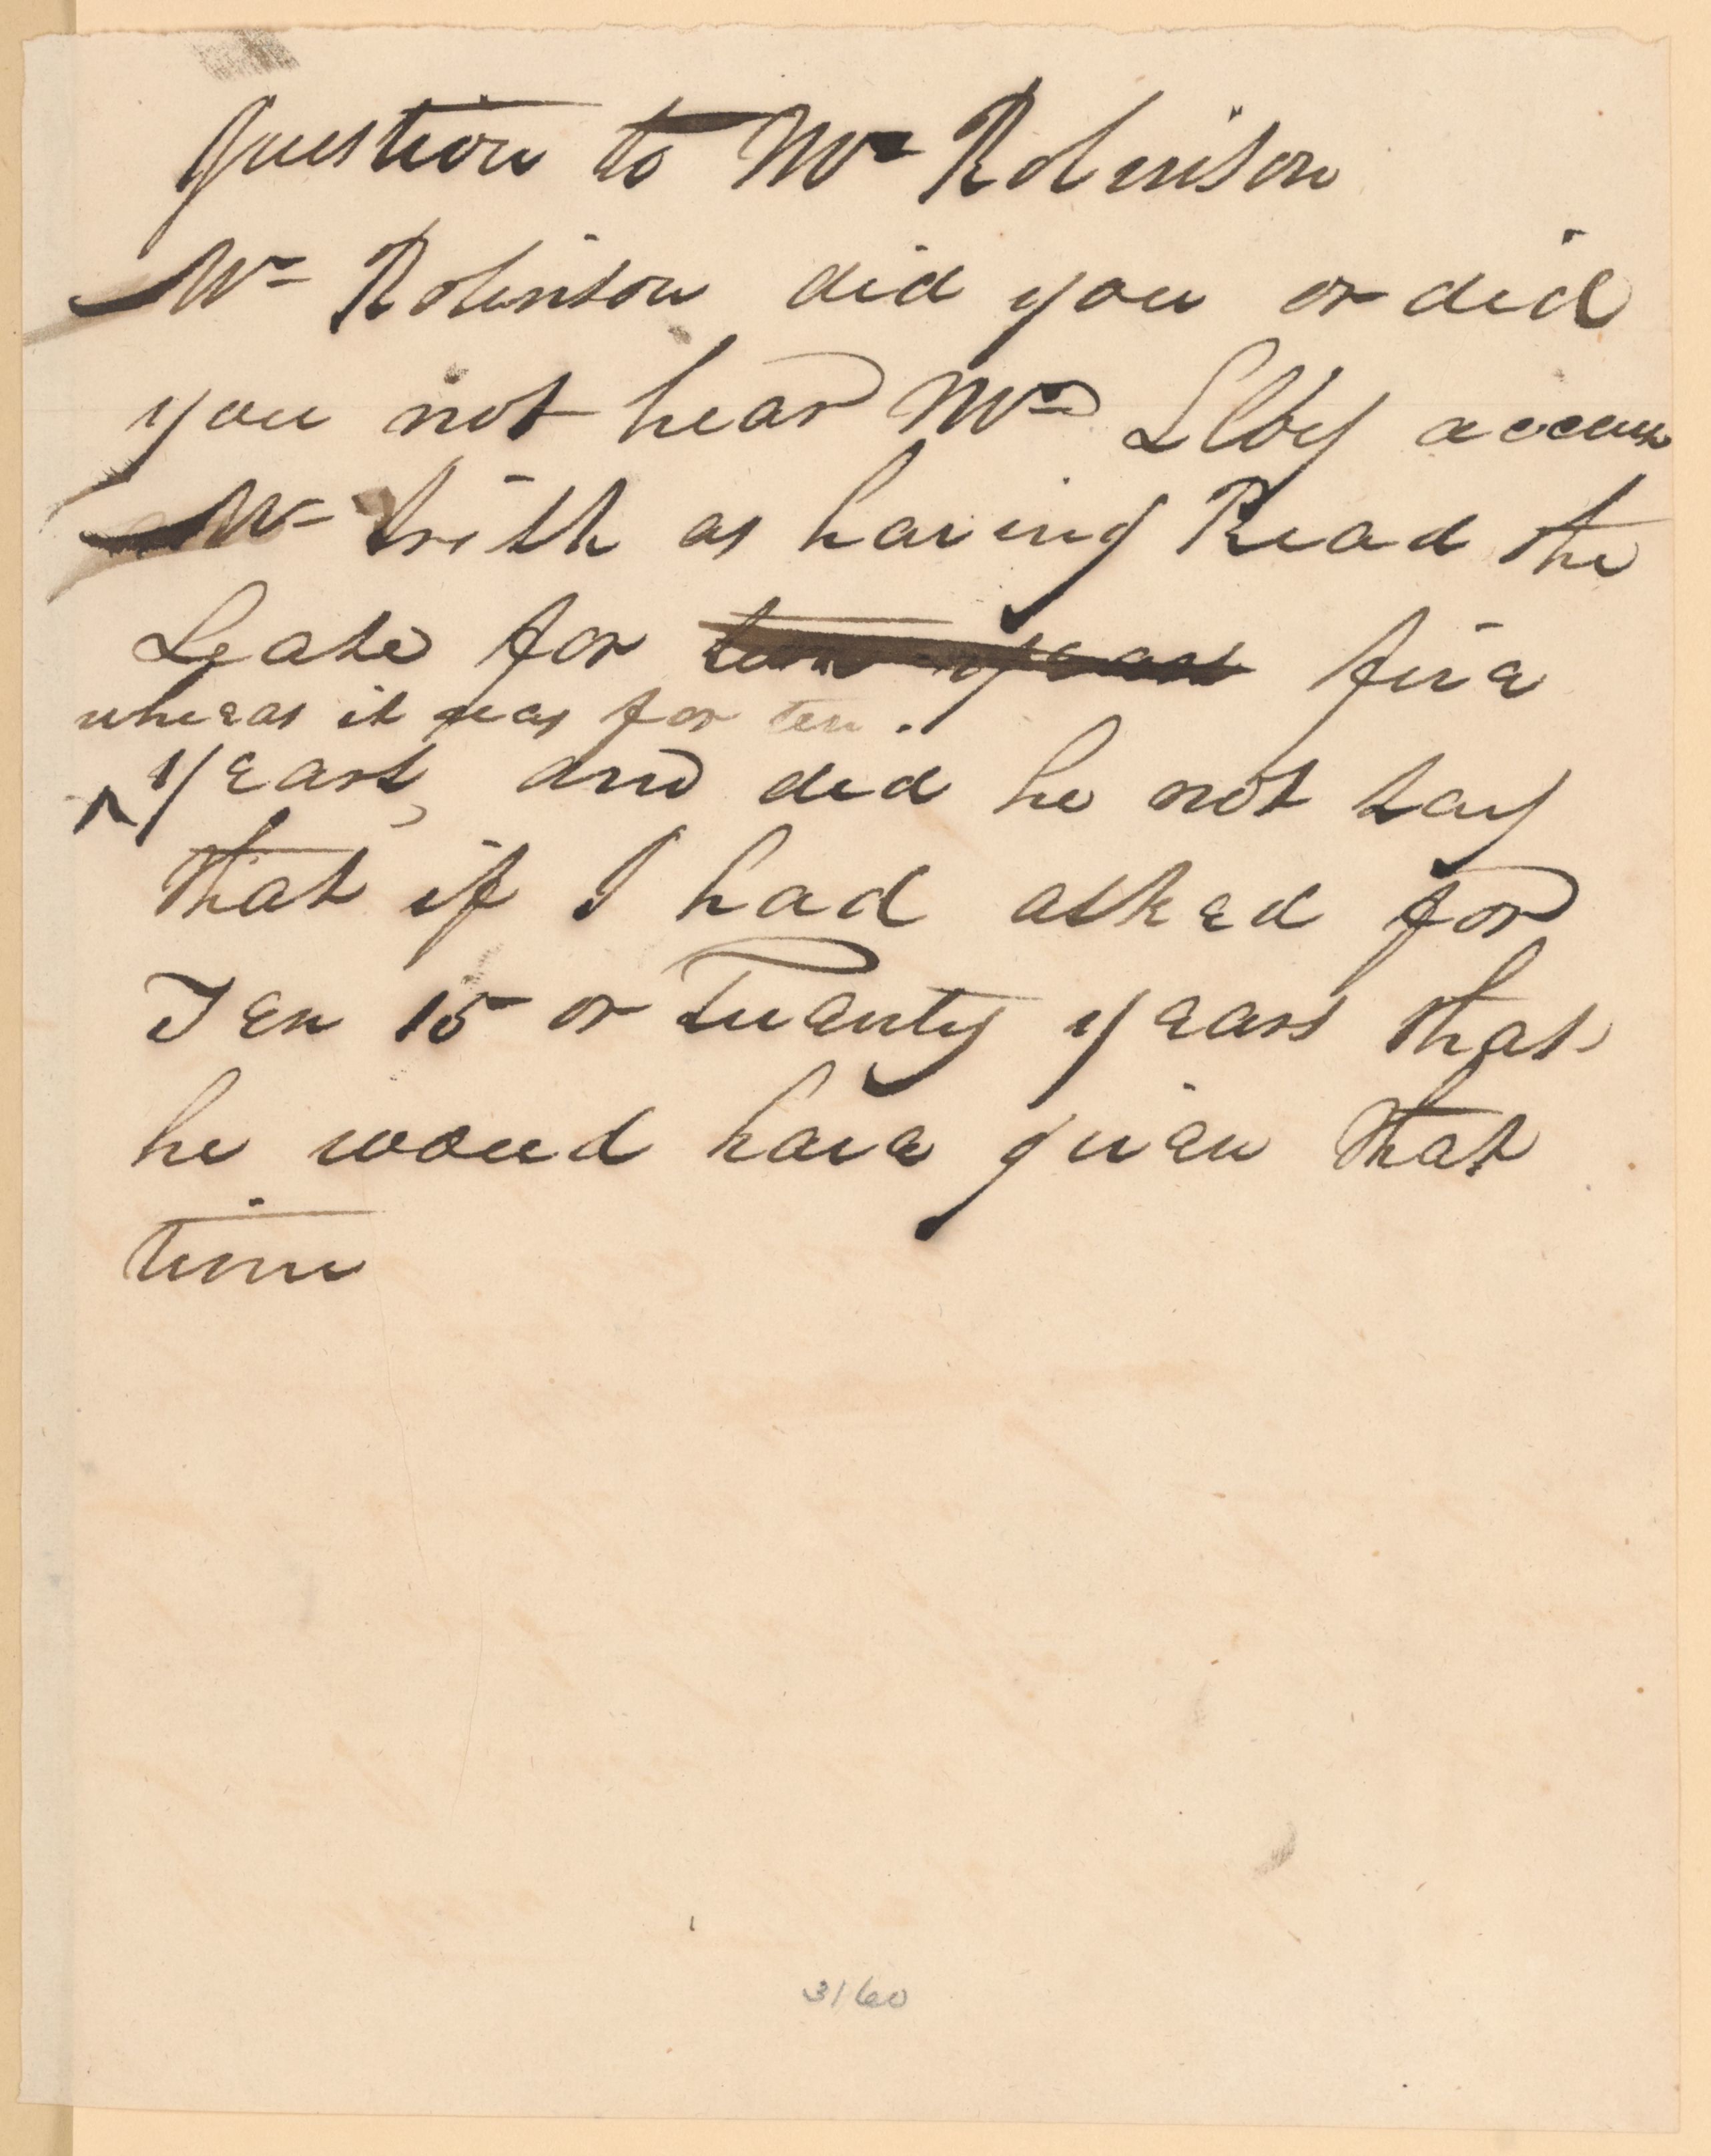 Question to Mr Robinson
Mr Robinson did you or did
you not hear Mr Elby accuse
Mr Frith as having Read the
Lease for ten years five
whereas it was for ten.
years, and did he not say
that if I had asked for
Ten 15 or Twenty years that
he woued have given that
time
3160